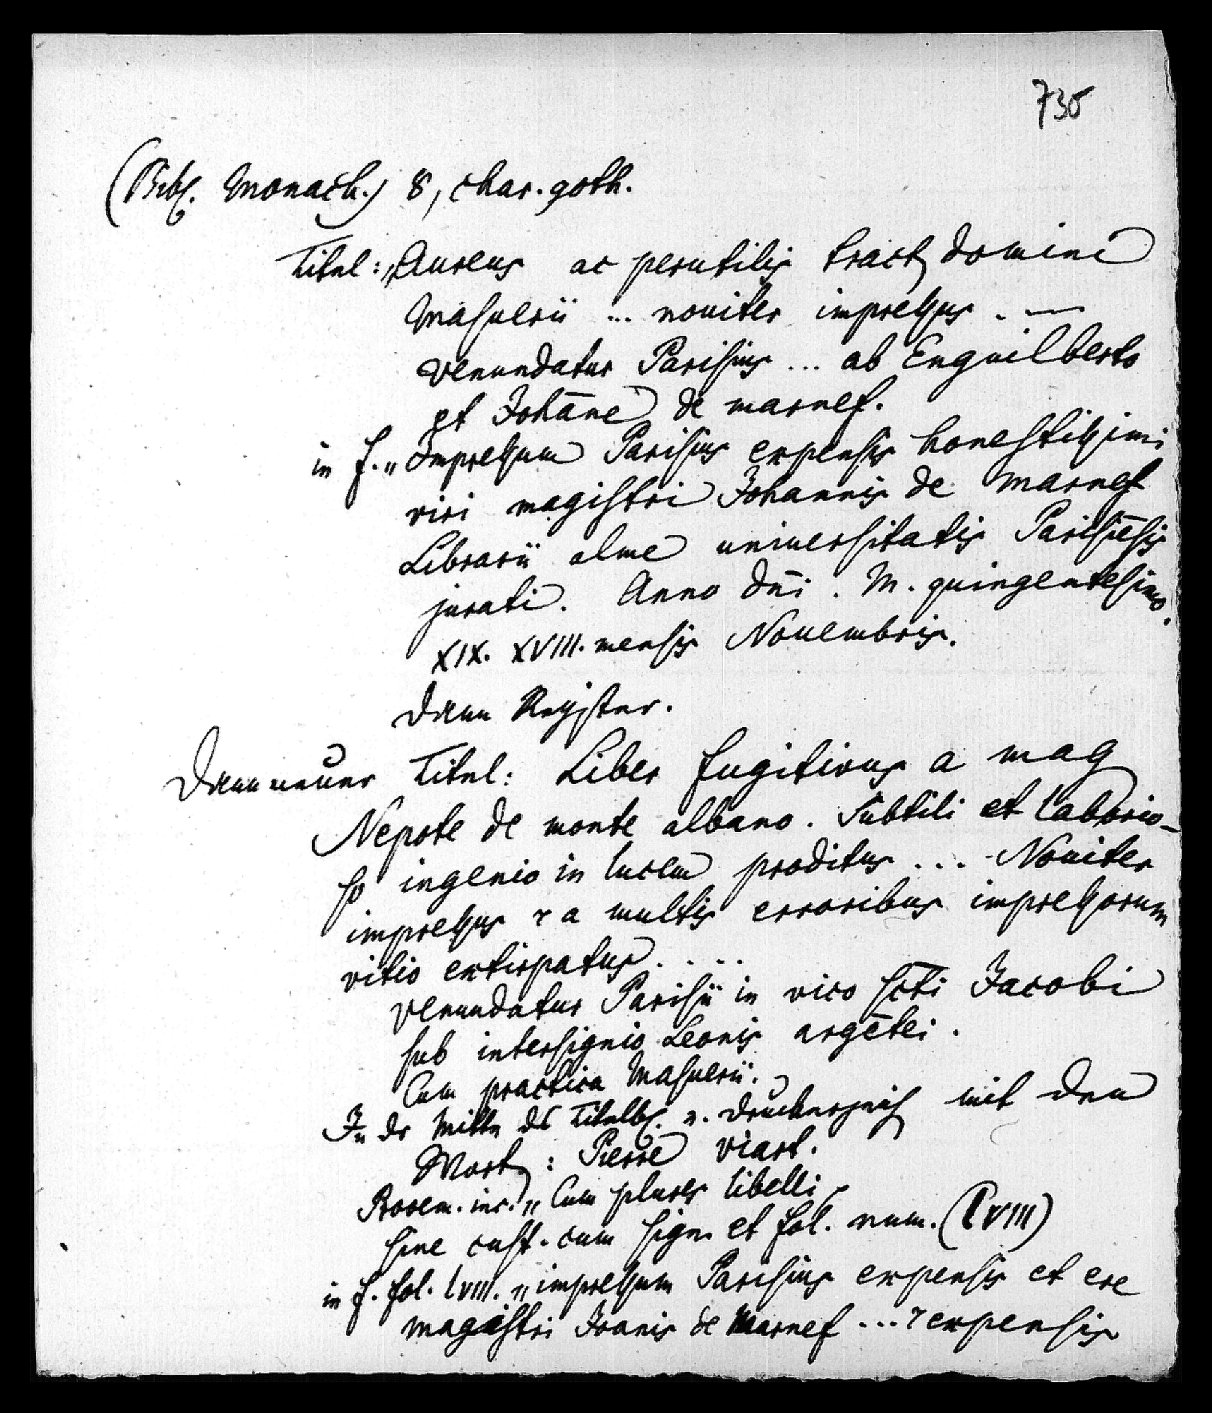 735
(Bibl. Monach.) 8, char. goth.
Titel: „Aureus ac perutilis tract domini
Masuerii ... nouiter impressus. —
venundatur Parisius ... ab Enguilberto
et Johāne de marnef.
in f. „Impressum Parisius expensis honestissimi
viri magistri Johannis de Marnef
Librarii alme universitatis Parisiēsis
jurati. Anno dñi. M. quingentesimo.
XIX. XVIII. mensis Nouembris.
Dann Register.
Dann neuer Titel: Liber fugitivus a mag
Nepote de monte albano. Subtili et labborio-
so ingenio in lucem proditus ... Nouiter
impressus & a multis erroribus impressorum
vitio extirpatus ....
venundatur Parisii in vico scti Jacobi
sub intersignio Leonis argētei.
Cum practica Masuerii.
In der Mitte des Titelbl. d. Druckerzeich mit den
Wort: Pierre viart.
Prooem. inc. „Cum plures libelli
sine cust. cum sign. et fol. num. (lviii)
in f. fol. lviii. „impressum Parisius expensis et ere
magistri Joanis de Marnef ... & expensis